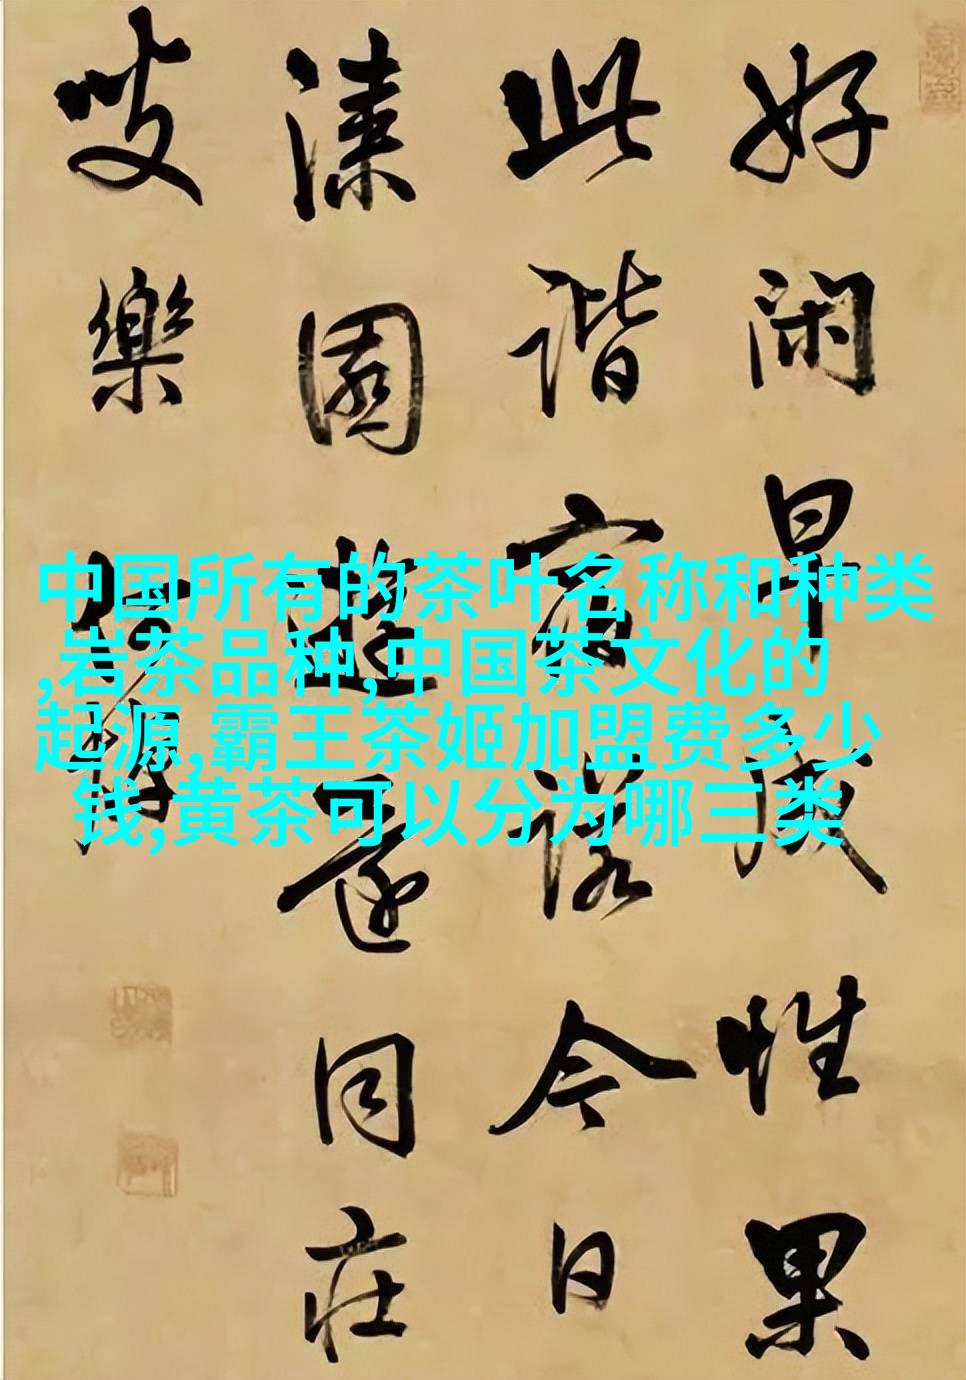 好閑早成性果
此谐宿诺今日
漆園遊還同庄
叟樂
中国所有的茶叶名称和种类
,岩茶品种,中国茶文化的
起源,霸王茶姬加盟费多少
钱,黄茶可以分为哪三类